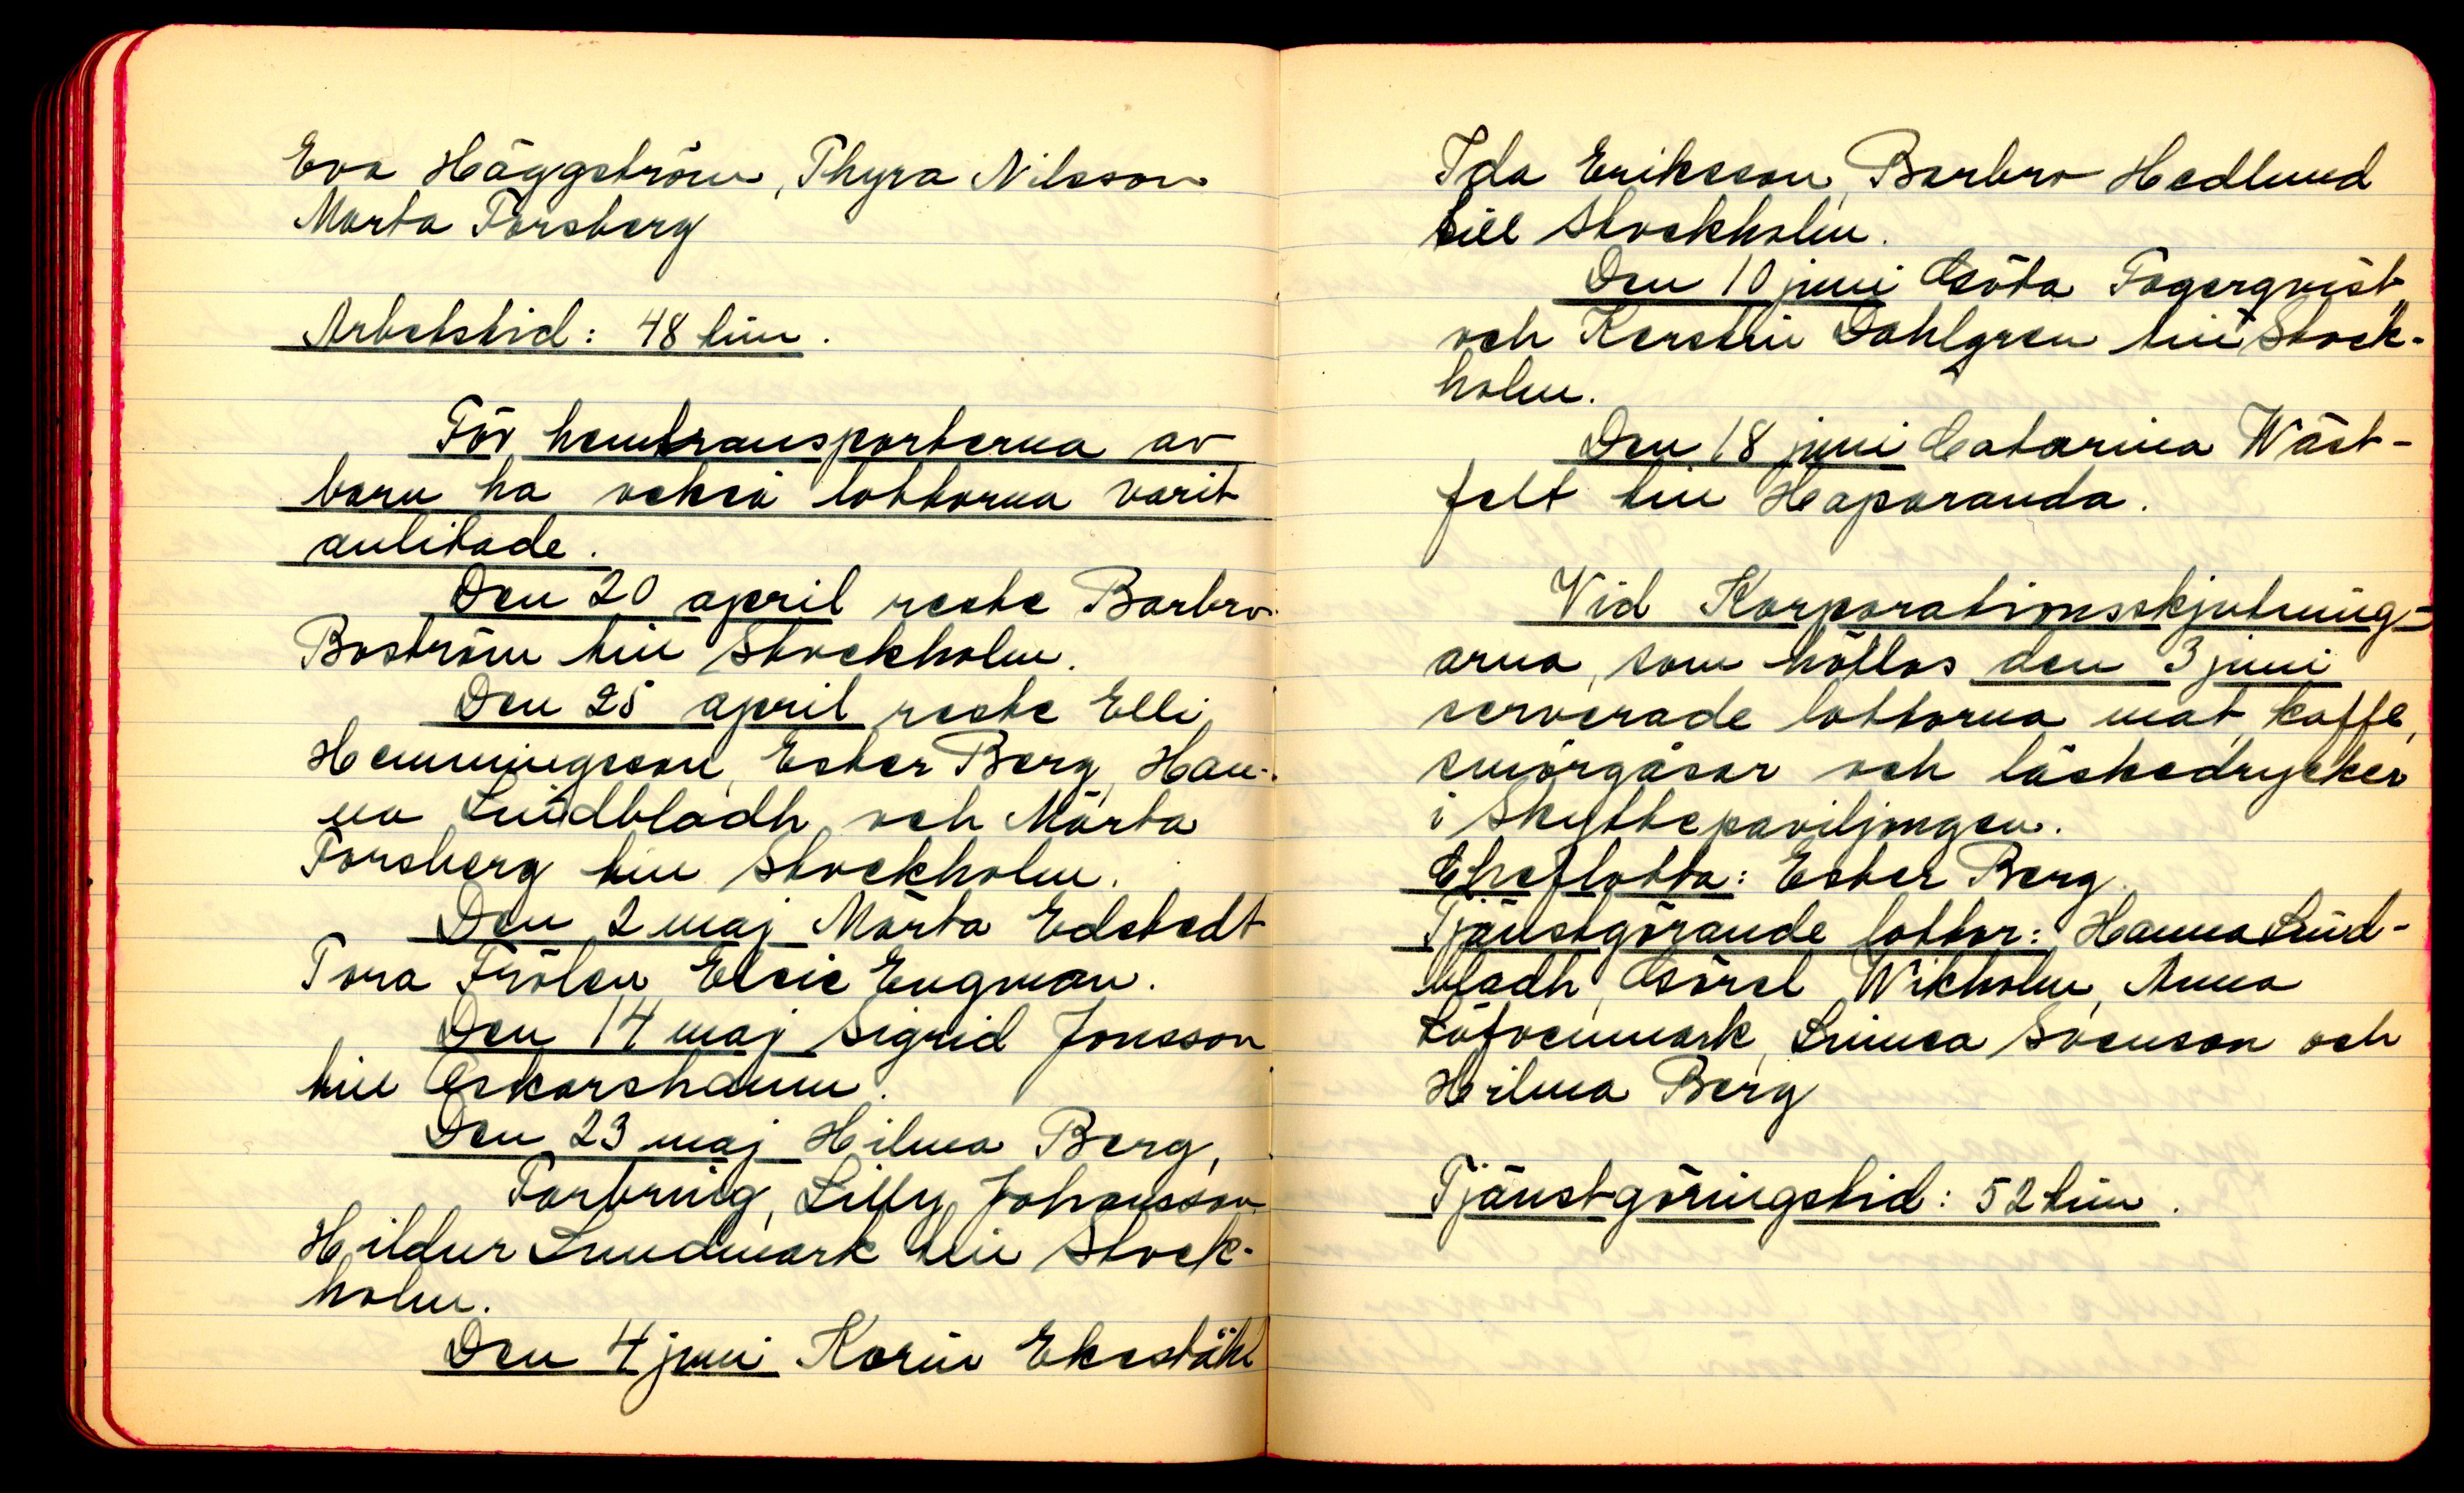 Eva Häggström, Thyra Nilsson
Marta Forsberg
Arbetstid: 48 tim.
För hemtransporterna av
barn ha också lottorna varit
anlitade.
Den 20 april reste Barbro
Boström till Stockholm.
Den 25 april reste Elli
Hemmingsson, Ester Berg, Han-
na Lindbladh och Märta
Forsberg till Stockholm.
Den 2 maj Märta Edstedt
Tora Frölén Elsie Engman.
Den 14 maj Sigrid Jonsson
till Oskarshamn.
Den 23 maj Hilma Berg,
Forbring, Lilly Johansson
Hildur Lundmark till Stock-
holm.
Den 4 juni Karin Ekeståhl
Ida Eriksson, Barbro Hedlund
till Stockholm.
Den 10 juni Göta Fagerqvist
och Kerstin Dahlgren till Stock-
holm.
Den 18 juni Catarina Wäst-
felt till Haparanda.
Vid Korporationsskjutning-
arna, som höllos den 3 juni
serverade lottorna mat, kaffe,
smörgåsar och läskedrycker
i Skyttepaviljongen.
Cheflotta: Ester Berg.
Tjänstgörande lottor: Hanna Lind-
bladh, Görel Wikholm, Anna
Löfvenmark, Linnea Svenson och
Hilma Berg
Tjänstgöringstid: 52 tim.